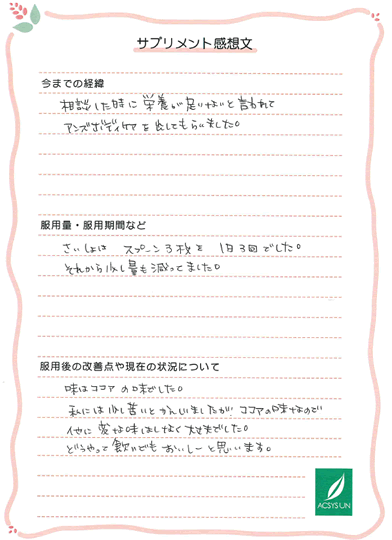 サプリメント感想文
今までの経緯
相談した時に栄養が足りないと言われて
アンズボディケアを出してもらいました。
服用量・服用期間など
さいしょは スプーン3杯を 1日3回でした。
それから少し量も減ってました。
服用後の改善点や現在の状況について
味はココアの味でした。
私には少し苦いとかんじましたが ココアの味なので
他に変な味はしなく大丈夫でした。
どうやって飲んでもおいしーと思います。
ACSYSUN